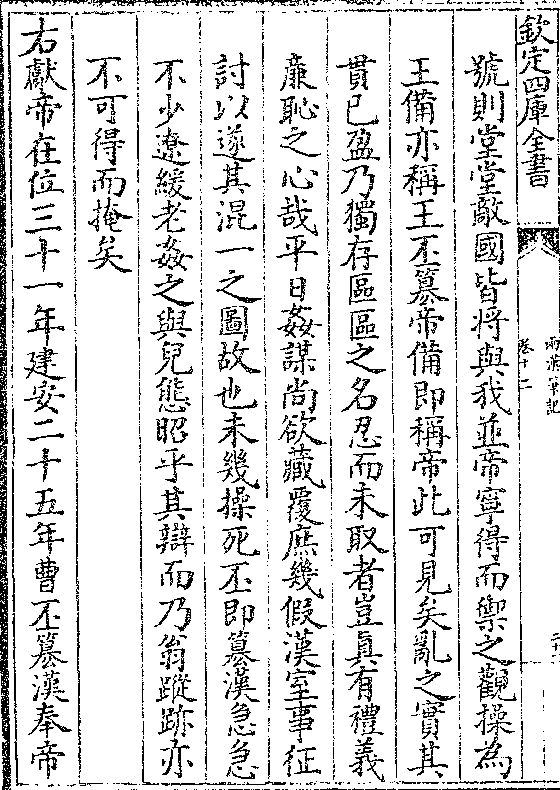 欽定四庫全書
兩漢筆記
卷十二
號則堂堂敵國皆将與我並帝寧得而禦之觀操為
王備亦稱王丕篡帝備即稱帝此可見矣亂之實其
貫已盈乃獨存區區之名忍而未取者豈真有禮義
廉恥之心哉平日姦謀尚欲藏覆庶幾假漢室事征
討以遂其混一之圖故也未幾操死丕即篡漢急急
不少遼緩老姦之與兒態昭乎其辯而乃翁蹤跡亦
不可得而掩矣
右獻帝在位三十一年建安二十五年曹丕篡漢奉帝